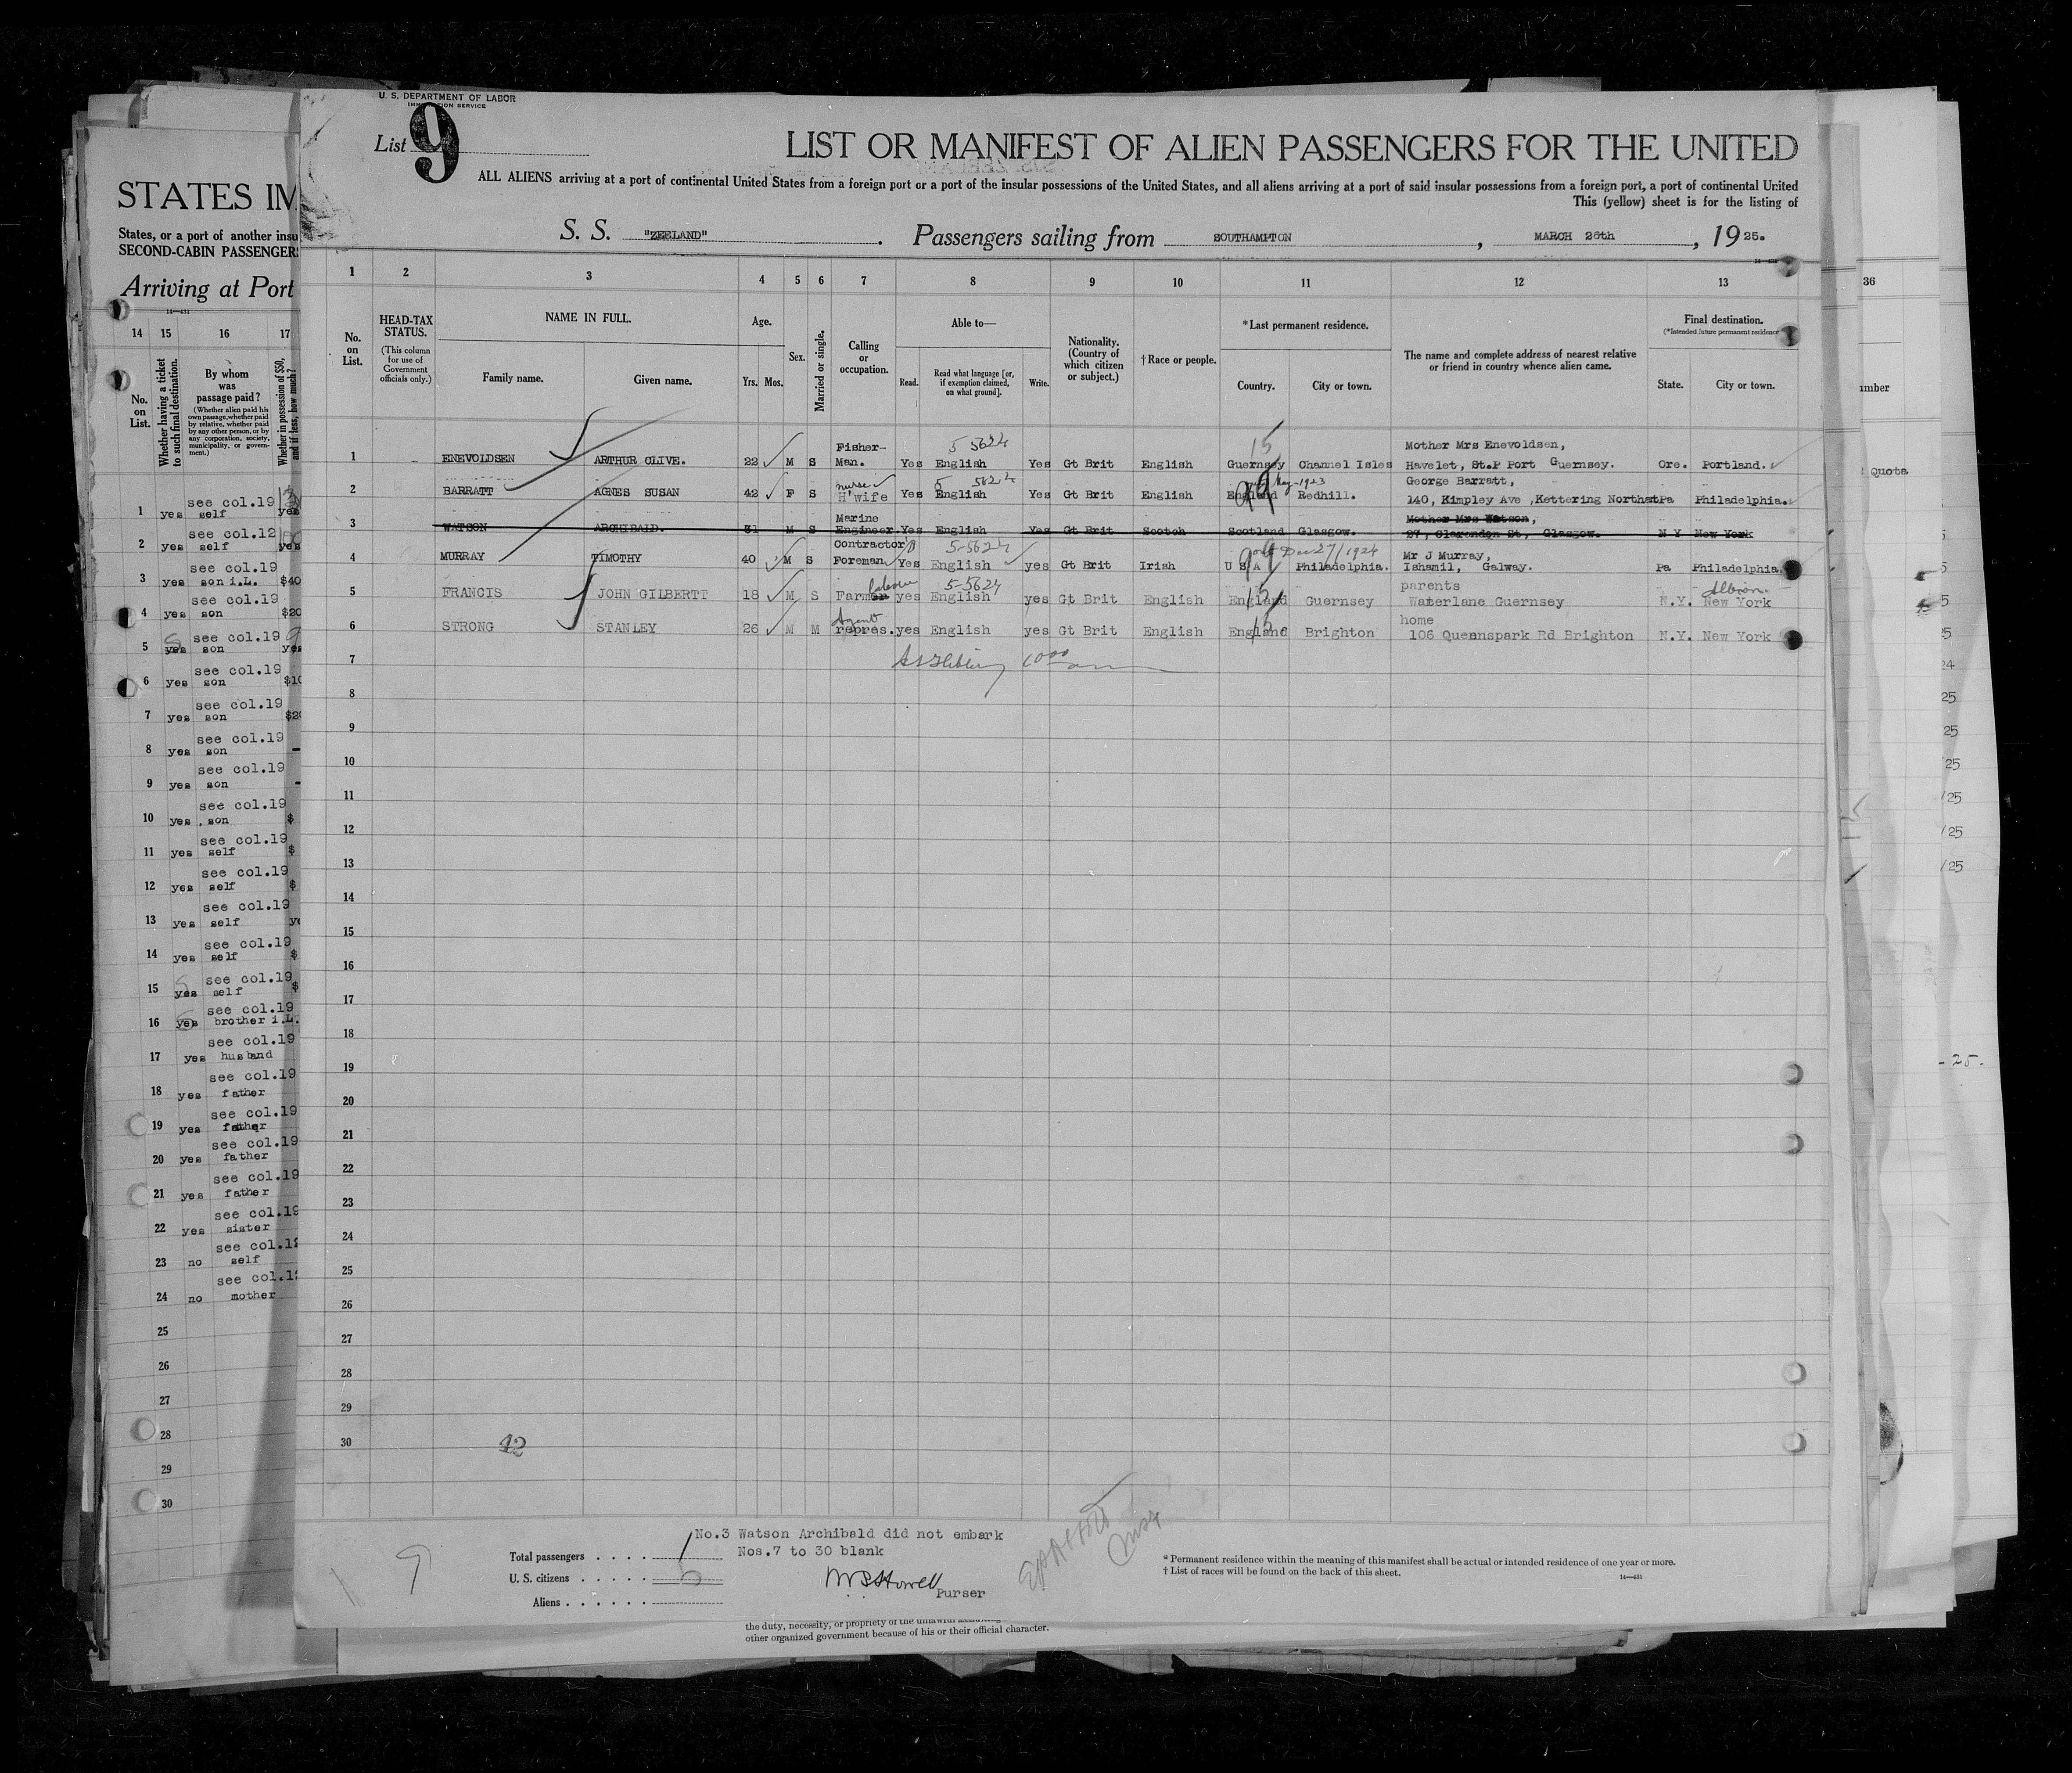 U. S. DEPARTMENT OF LABOR
List 9
LIST OR MANIFEST OF ALIEN PASSENGERS FOR THE UNITED
ALL ALIENS arriving at a port of continental United States from a foreign port or a port of the insular possessions of the United States, and all aliens arriving at a port of said insular possessions from a foreign port, a port of continental United
This (yellow) sheet is for the listing of
S. S. "ZEELAND". Passengers sailing from SOUTHAMPTON, MARCH 26th, 1925.
1 2 3 4 5 6 7 8 9 10 11 12 13
No. on List.
HEAD-TAX STATUS.
(This column for use of Government officials only.)
NAME IN FULL.
Family name. Given name.
Age.
Yrs. Mos.
Sex.
Married or single.
Calling or occupation.
Able to—
Read. Read what language [or, if exemption claimed, on what ground]. Write.
Nationality. (Country of which citizen or subject.)
†Race or people.
*Last permanent residence.
Country. City or town.
The name and complete address of nearest relative or friend in country whence alien came.
Final destination.
(*Intended future permanent residence
State. City or town.
5 5624 15
1 ENEVOLDSEN ARTHUR CLIVE. 22 M S Fisher-Man. Yes English Yes Gt Brit English Guernsey Channel Isles Mother Mrs Enevoldsen, Havelet, St.P Port Guernsey. Ore. Portland.
nurse 5 5624
2 BARRATT AGNES SUSAN 42 F S H'wife Yes English Yes Gt Brit English England Redhill. George Barratt, 140, Kimpley Ave ,Kettering Northst Pa Philadelphia.
3 WATSON ARCHIBALD. 31 M S Marine Engineer. Yes English Yes Gt Brit Scotch Scotland Glasgow. Mother Mrs Watson, 27, Clarendon St, Glasgow. N Y New York
5-5624 Dec 27/1924
4 MURRAY TIMOTHY 40 M S Contractor Foreman Yes English yes Gt Brit Irish U S A Philadelphia. Mr J Murray, Ishamil, Galway. Pa Philadelphia.
5-5624 Albion
5 FRANCIS JOHN GILBERTT 18 M S Farmer yes English yes Gt Brit English England Guernsey parents Waterlane Guernsey N.Y. New York
Agent
6 STRONG STANLEY 26 M M repres. yes English yes Gt Brit English England Brighton home 106 Queenspark Rd Brighton N.Y. New York
7
8
9
10
11
12
13
14
15
16
17
18
19
20
21
22
23
24
25
26
27
28
29
30
42
No.3 Watson Archibald did not embark
Nos.7 to 30 blank
Total passengers . . . .
U. S. citizens . . . . .
Aliens . . . . . .
Purser
* Permanent residence within the meaning of this manifest shall be actual or intended residence of one year or more.
† List of races will be found on the back of this sheet.
14—431
other organized government because of his or their official character.
STATES IM
States, or a port of another insu
SECOND-CABIN PASSENGER
Arriving at Port
14 15 16 17
No. on List.
Whether having a ticket to such final destination.
By whom was passage paid?
(Whether alien paid his own passage, whether paid by relative, whether paid by any other person, or by any corporation, society, municipality, or government.)
Whether in possession of $50, and if less, how much?
1 yes see col.19 self yes
2 yes see col.12 self yes
3 yes see col.19 son i.L. $40
4 yes see col.19 son $20
5 yes see col.19 son yes
6 yes see col.19 son $10
7 yes see col.19 son $20
8 yes see col.19 son -
9 yes see col.19 son -
10 yes see col.19 son $
11 yes see col.19 self $
12 yes see col.19 self $
13 yes see col.19 self
14 yes see col.19 self $
15 yes see col.19 self $
16 yes see col.19 brother i.L.
17 yes see col.19 husband
18 yes see col.19 father
19 yes see col.19 father
20 yes see col.19 father
21 yes see col.19 father
22 yes see col.19 sister
23 no see col.1 self
24 no see col.1 mother
25
26
27
28
29
30
36
Quota
25
25
25
/25
/25
/25
-25.